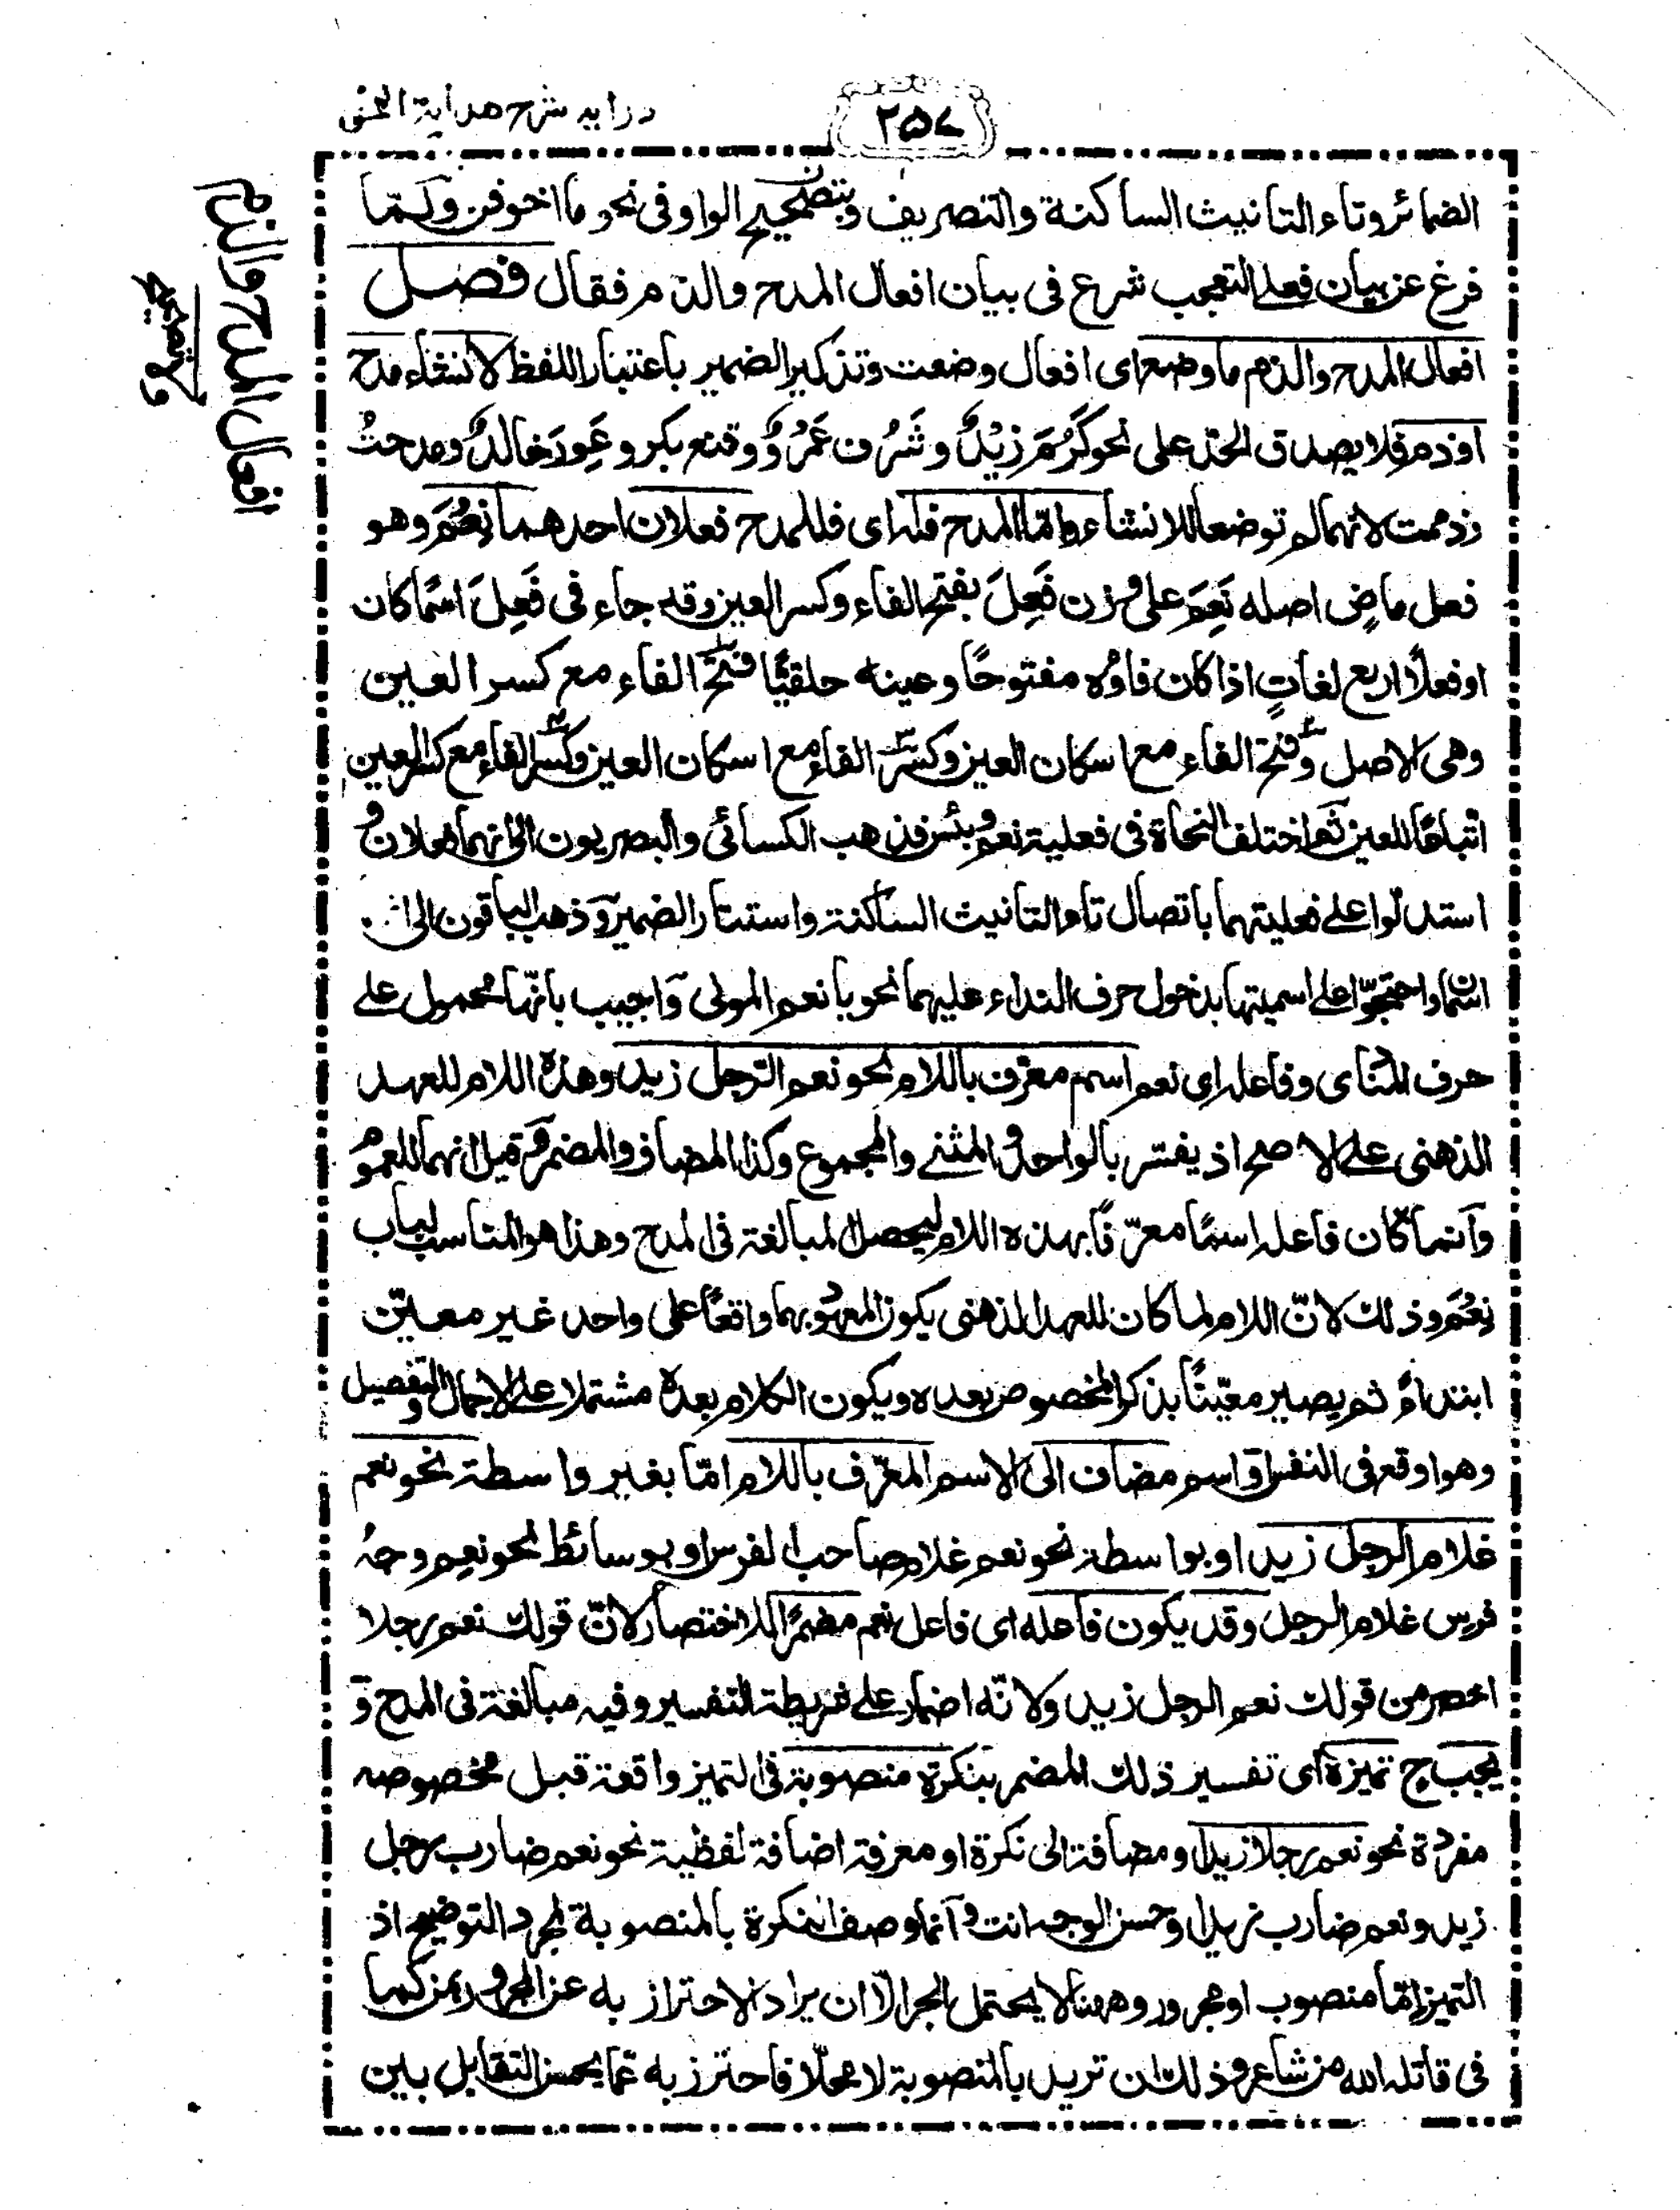 درایه شرح هدایة النحو
۲۵۷
افعال المدح والذم
الضمائر وتاء التانیث الساکنة والتصریف وبتصحیح الواو فی نحو ما اخوفن ولمّا
فرغ عن بیان فعلی التعجب شرع فی بیان افعال المدح والذم فقال فصل
افعال المدح والذم ما وضع ای افعال وضعت وتذکیر الضمیر باعتبار اللفظ لانشاء مدح
او ذم فلا یصدق الحدّ علی نحو کَرُمَ زَیْدٌ وشَرُف عَمْرٌو وقنع بکر وعَوِرَ خالدٌ ومدحتُ
وذممت لانهما لم توضعا للانشاء وامّا المدح فله ای فللمدح فعلان احدهما نِعْمَ وهو
فعل ماضٍ اصله نَعِمَ علی وزن فَعِلَ بفتح الفاء وکسر العین وقد جاء فی فَعِلَ اسمًا کان
او فعلًا اربع لغاتٍ اذا کان فاؤه مفتوحًا وعینه حلقیًّا فتح الفاء مع کسر العین
وهی الاصل وفتح الفاء مع اسکان العین وکسر الفاء مع اسکان العین وکسر الفاء مع کسر العین
اتباعًا للعین ثم اختلف النحاة فی فعلیة نعم وبئس فذهب الکسائی والبصریون الی انهما فعلان و
استدلّوا علی فعلیتهما باتصال تاء التانیث الساکنة واستتار الضمیر وذهب الباقون الی
اسمان واحتجّوا علی اسمیتها بدخول حرف النداء علیهما نحو یا نعم المولی واجیب بانّها محمول علی
حرف المنادی وفاعله ای نعم اسم معرّف باللام نحو نعم الرّجل زید وهذه اللام للعهد
الذهنی علی الاصح اذ یفسّر بالواحد والمثنی والمجموع وکذا المضاف والمضمر وقیل انهما للعموم
وانما کان فاعله اسمًا معرّفًا بهذه اللام لیحصل المبالغة فی المدح وهذا هو المناسب لباب
نِعْمَ وذلک لانّ اللام لما کان للعهد الذهنی یکون المعهود بهما واقعًا علی واحد غیر معیّن
ابتداءً ثم یصیر معیّنًا بذکر المخصوص بعده ویکون الکلام بعده مشتملا علی الاجمال والتفصیل
وهو اوقع فی النفس او اسم مضاف الی الاسم المعرّف باللام امّا بغیر واسطة نحو نعم
غلام الرجل زید او بواسطة نحو نعم غلام صاحب الفرس او بوسائط نحو نعم وجهُ
فرس غلام الرجل وقد یکون فاعله ای فاعل نعم مضمرًا للاختصار لانّ قولك نعم رجلا
اخصر من قولك نعم الرجل زید ولانّه اضمار علی شریطة التفسیر وفیه مبالغة فی المدح و
یجب ح تمیزه ای تفسیر ذلك المضمر بنکرة منصوبة فی التمیز واقعة قبل مخصوصه
مفردة نحو نعم رجلا زید او مضافة الی نکرة او معرفة اضافة لفظیة نحو نعم ضارب رجل
زید ونعم ضارب زید او حسن الوجه انت وانما وصف النکرة بالمنصوبة لمجرد التوضیح اذ
التمیز امّا منصوب او مجرور وههنا لا یحتمل الجر الّا ان یراد الاحتراز به عن المجرور بمن کما
فی قاتله الله من شاعر وذلك ان ترید بالمنصوبة لا محلّا فاحترز به عمّا یحسن التقابل بین